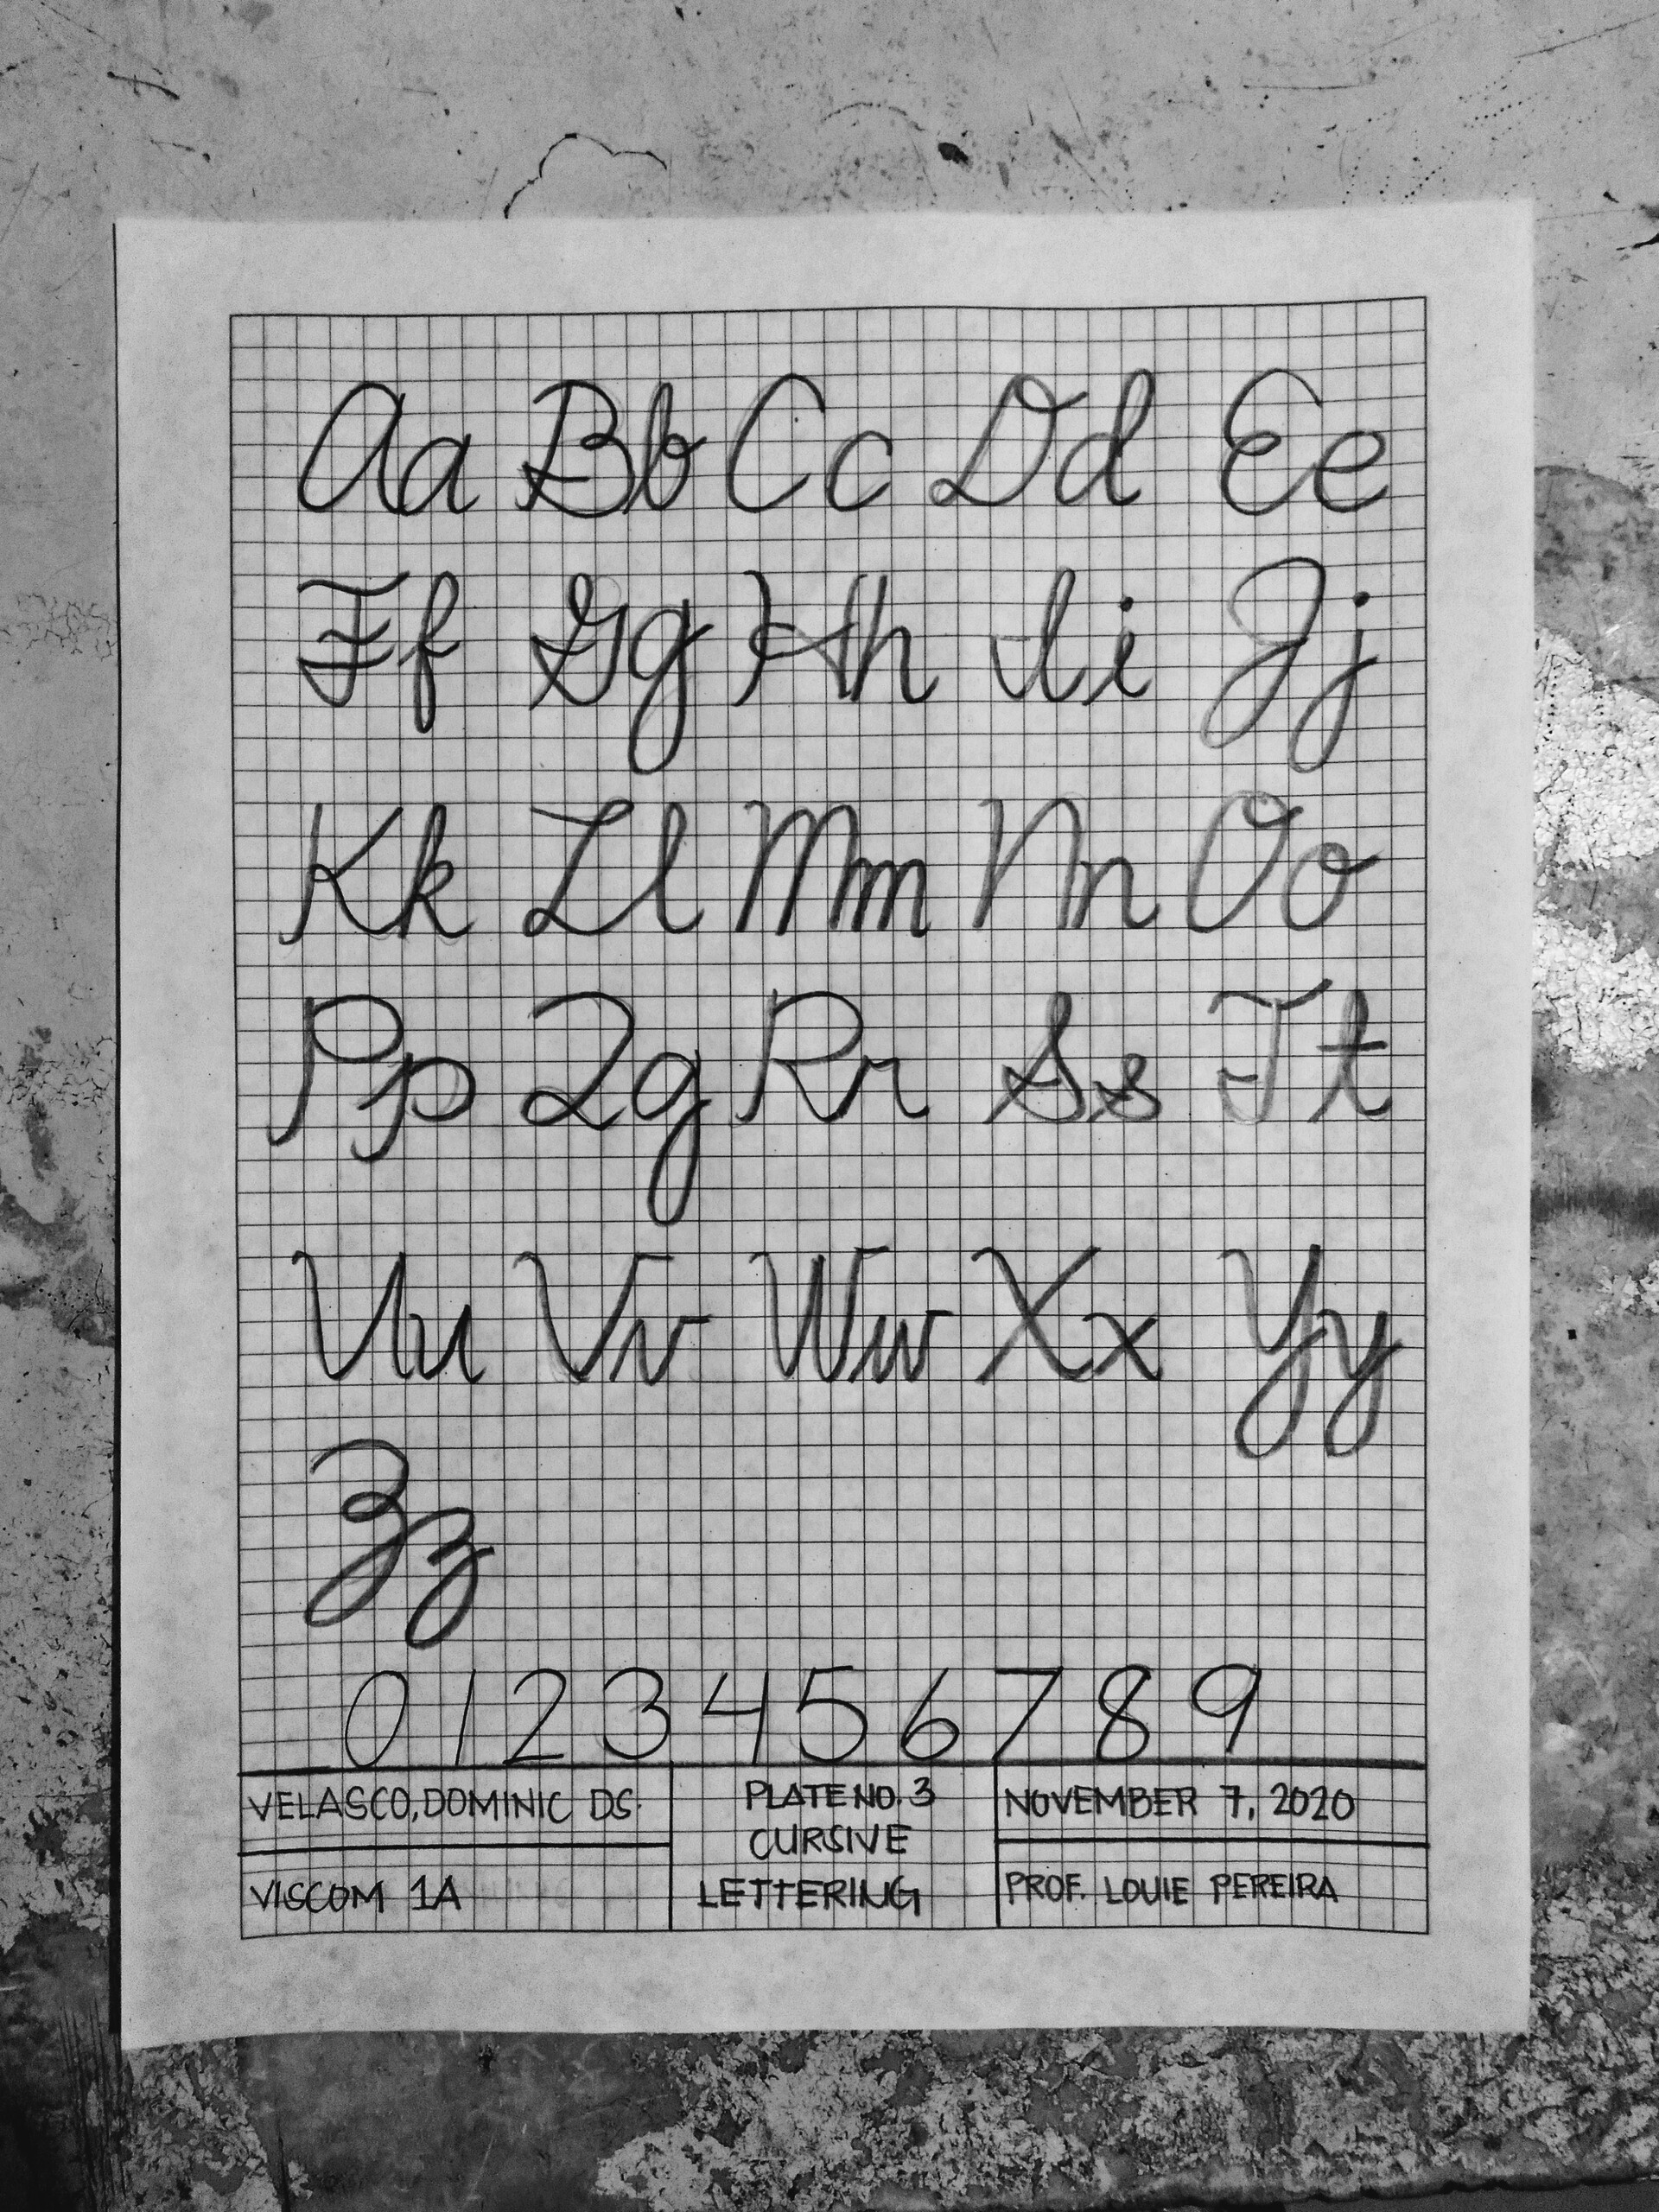 Aa Bb Cc Dd Ee
Ff Gg Hh Ii Jj
Kk Ll Mm Nn Oo
Pp Qq Rr Ss Tt
Uu Vv Ww Xx Yy
Zz
0 1 2 3 4 5 6 7 8 9
VELASCO, DOMINIC DS.
VISCOM 1A
PLATE NO. 3
CURSIVE
LETTERING
NOVEMBER 7, 2020
PROF. LOUIE PEREIRA